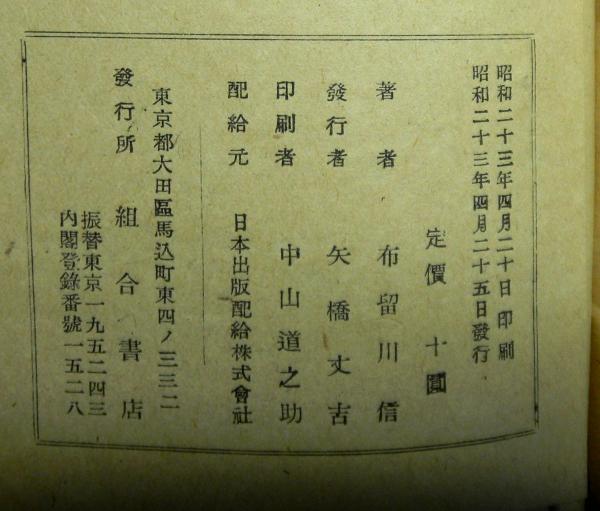 昭和二十三年四月二十日印刷
昭和二十三年四月二十五日發行
定價 十圓
著者 布留川信
發行者 矢橋丈吉
印刷者 中山道之助
配給元 日本出版配給株式會社
東京都大田區馬込町東四ノ三三二
發行所 組合書店
振替東京一九五二四三
內閣登錄番號一五二八